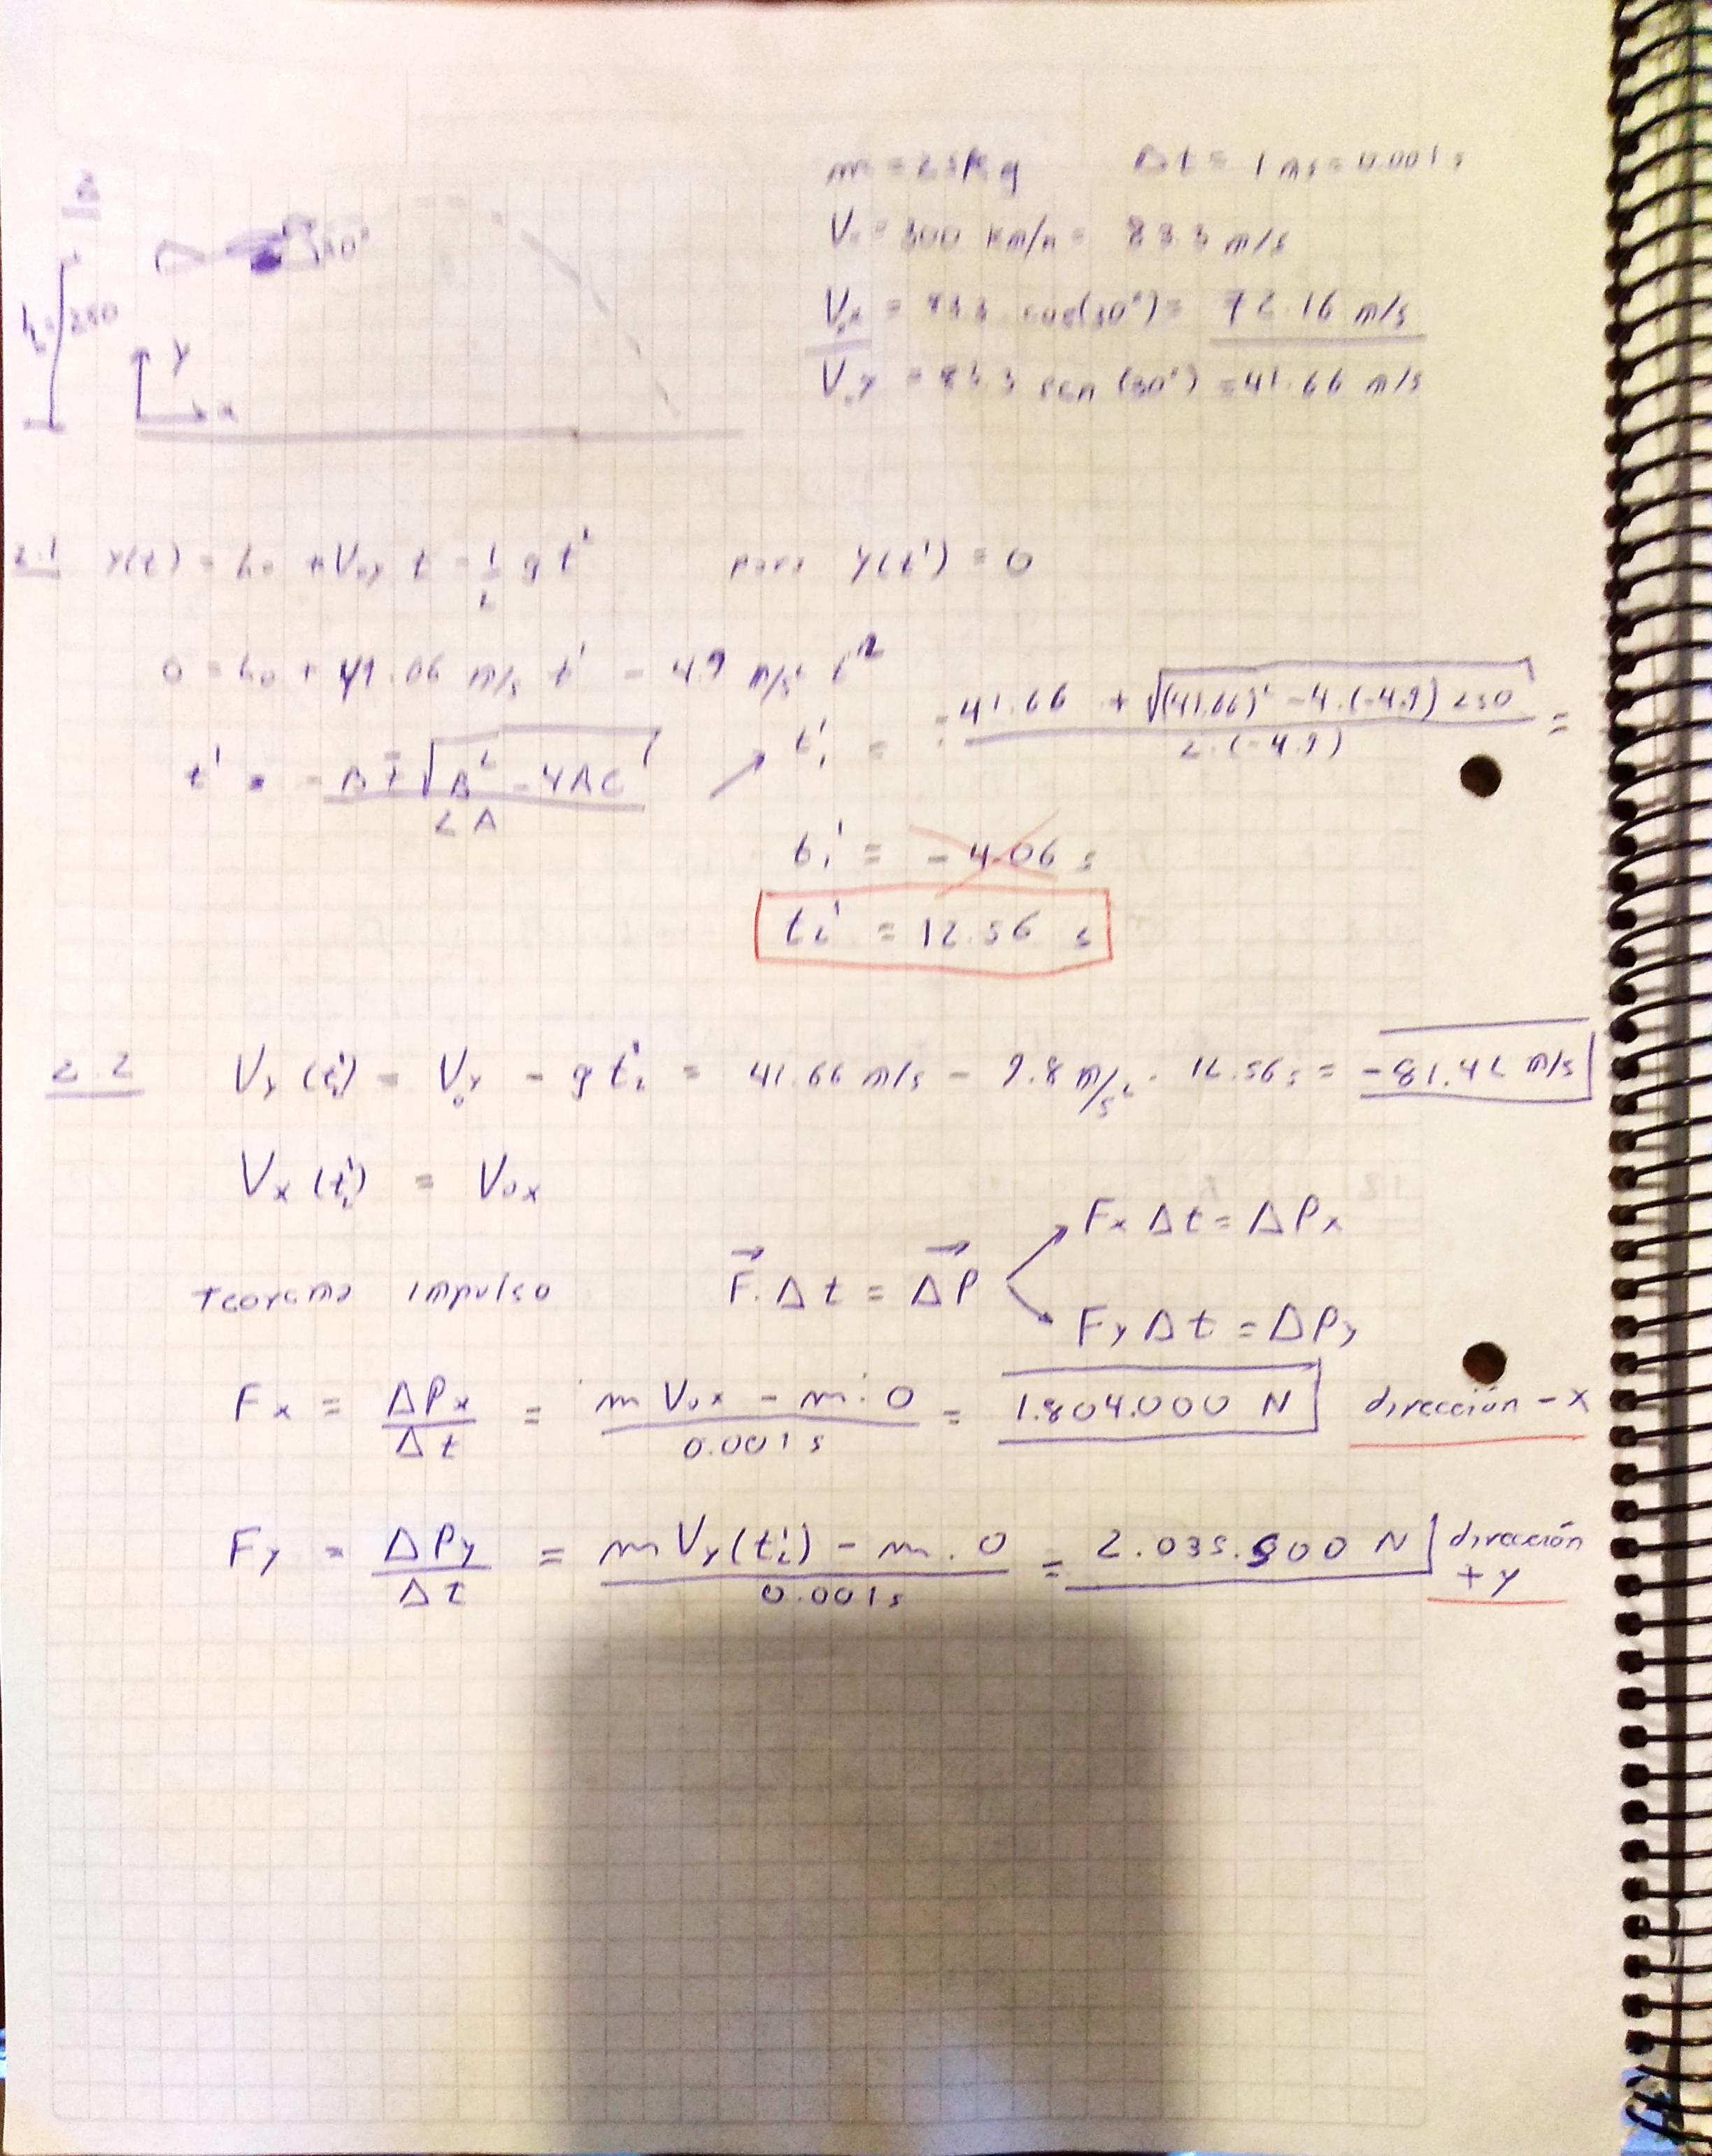 2
m = 25 Kg Δt = 1 ms = 0.001 s
V₀ = 300 Km/h = 83.3 m/s
30°
V₀x = 83.3 cos(30°) = 72.16 m/s
h₀ 250
y
V₀y = 83.3 sen (30°) = 41.66 m/s
x
2.1 Y(t) = h₀ + V₀y t - 1/2 g t² para Y(t') = 0
0 = h₀ + 41.06 m/s t' - 4.9 m/s² t'²
t' = -B ∓ √(B² - 4AC) / 2A ↗ t₁' = -41.66 + √((41.66)² - 4.(-4.9) 250) / 2.(-4.9) =
t₁' = -4.06 s
t₂' = 12.56 s
2.2 Vy (t₂') = V₀y - g t₂' = 41.66 m/s - 9.8 m/s² . 12.56 s = -81.42 m/s
Vx (t₂') = V₀x
Fx Δt = ΔPx
Teorema impulso F⃗. Δt = ΔP⃗
Fy Δt = ΔPy
Fx = ΔPx/Δt = m V₀x - m . 0 / 0.001 s = 1.804.000 N dirección -x
Fy = ΔPy/Δt = m Vy(t₂') - m . 0 / 0.001 s = 2.035.500 N dirección
+y